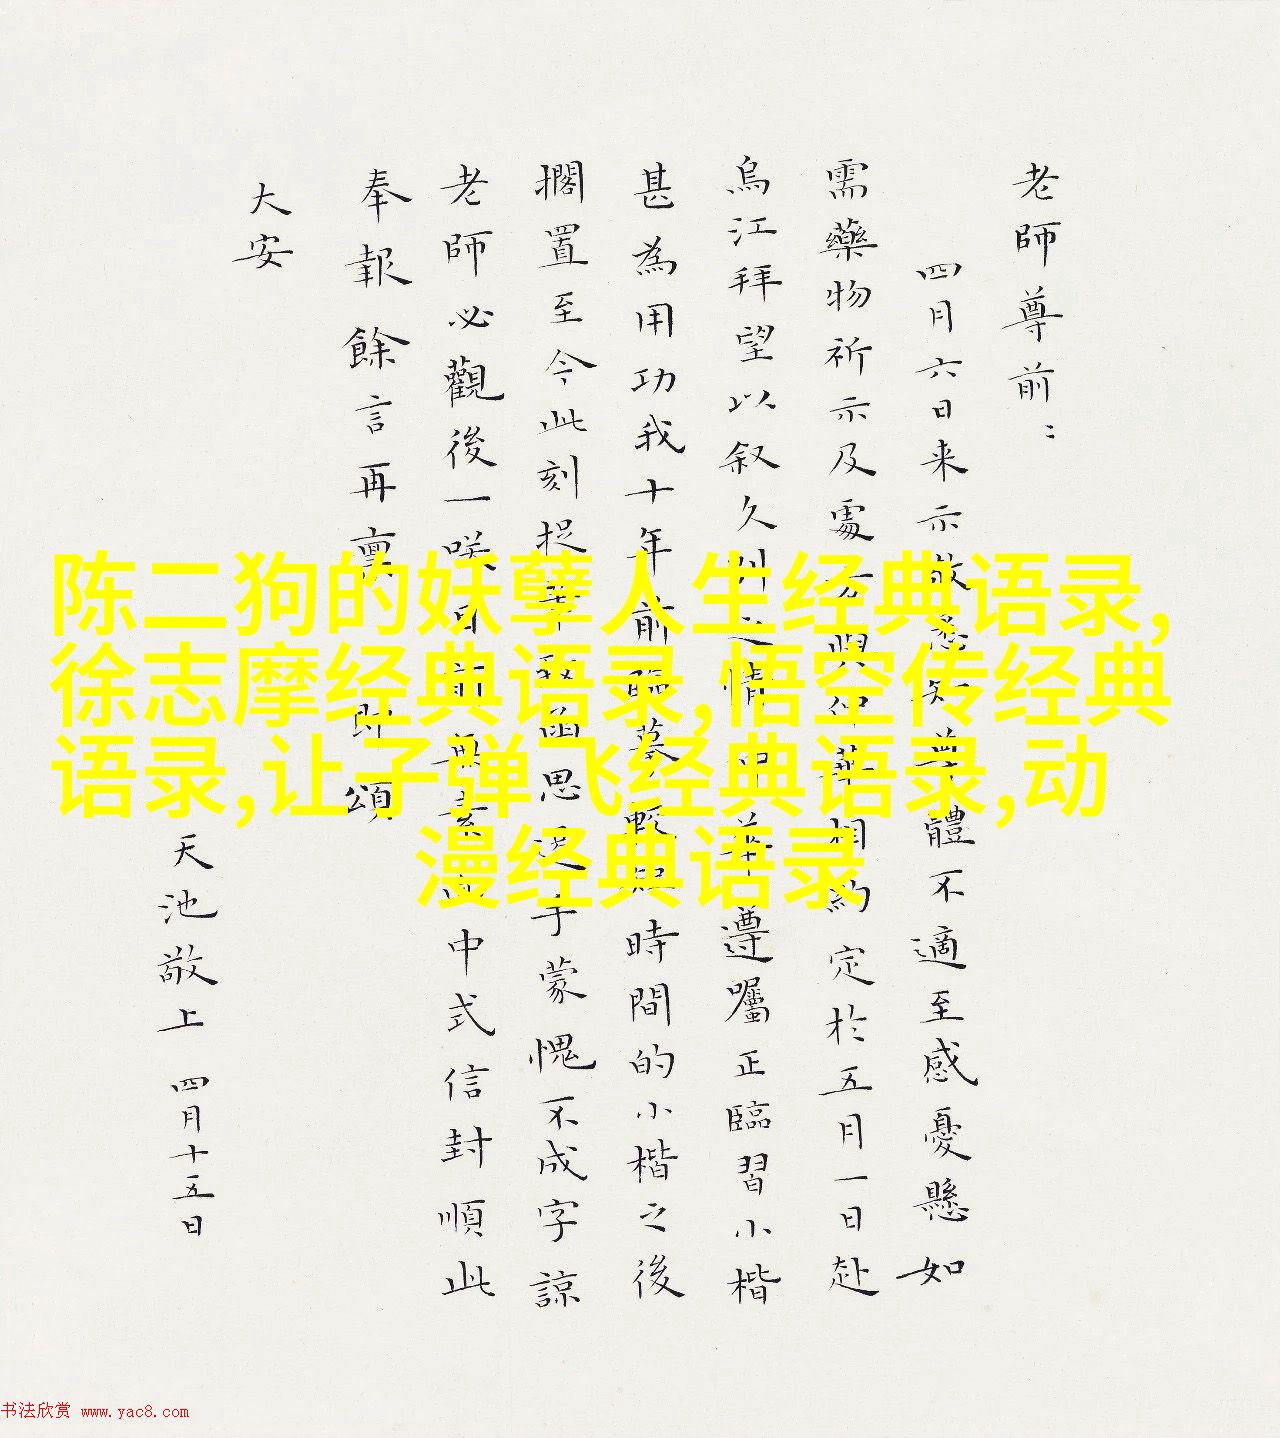 老師尊前：
四月六日来示敬悉知尊體不適至感憂懸如
需藥物祈示及處方與仲華相約定於五月一日赴
烏江拜望以叙久别之情華遵囑正臨習小楷
甚為用功我十年前臨摹較短時間的小楷之後
擱置至今此刻捉筆函思手蒙愧不成字諒
老師必觀後一咲目前無素中式信封順此
奉報餘言再稟即頌
大安
天池敬上 四月十五日
陈二狗的妖孽人生经典语录,
徐志摩经典语录,悟空传经典
语录,让子弹飞经典语录,动
漫经典语录
书法欣赏 www.yac8.com